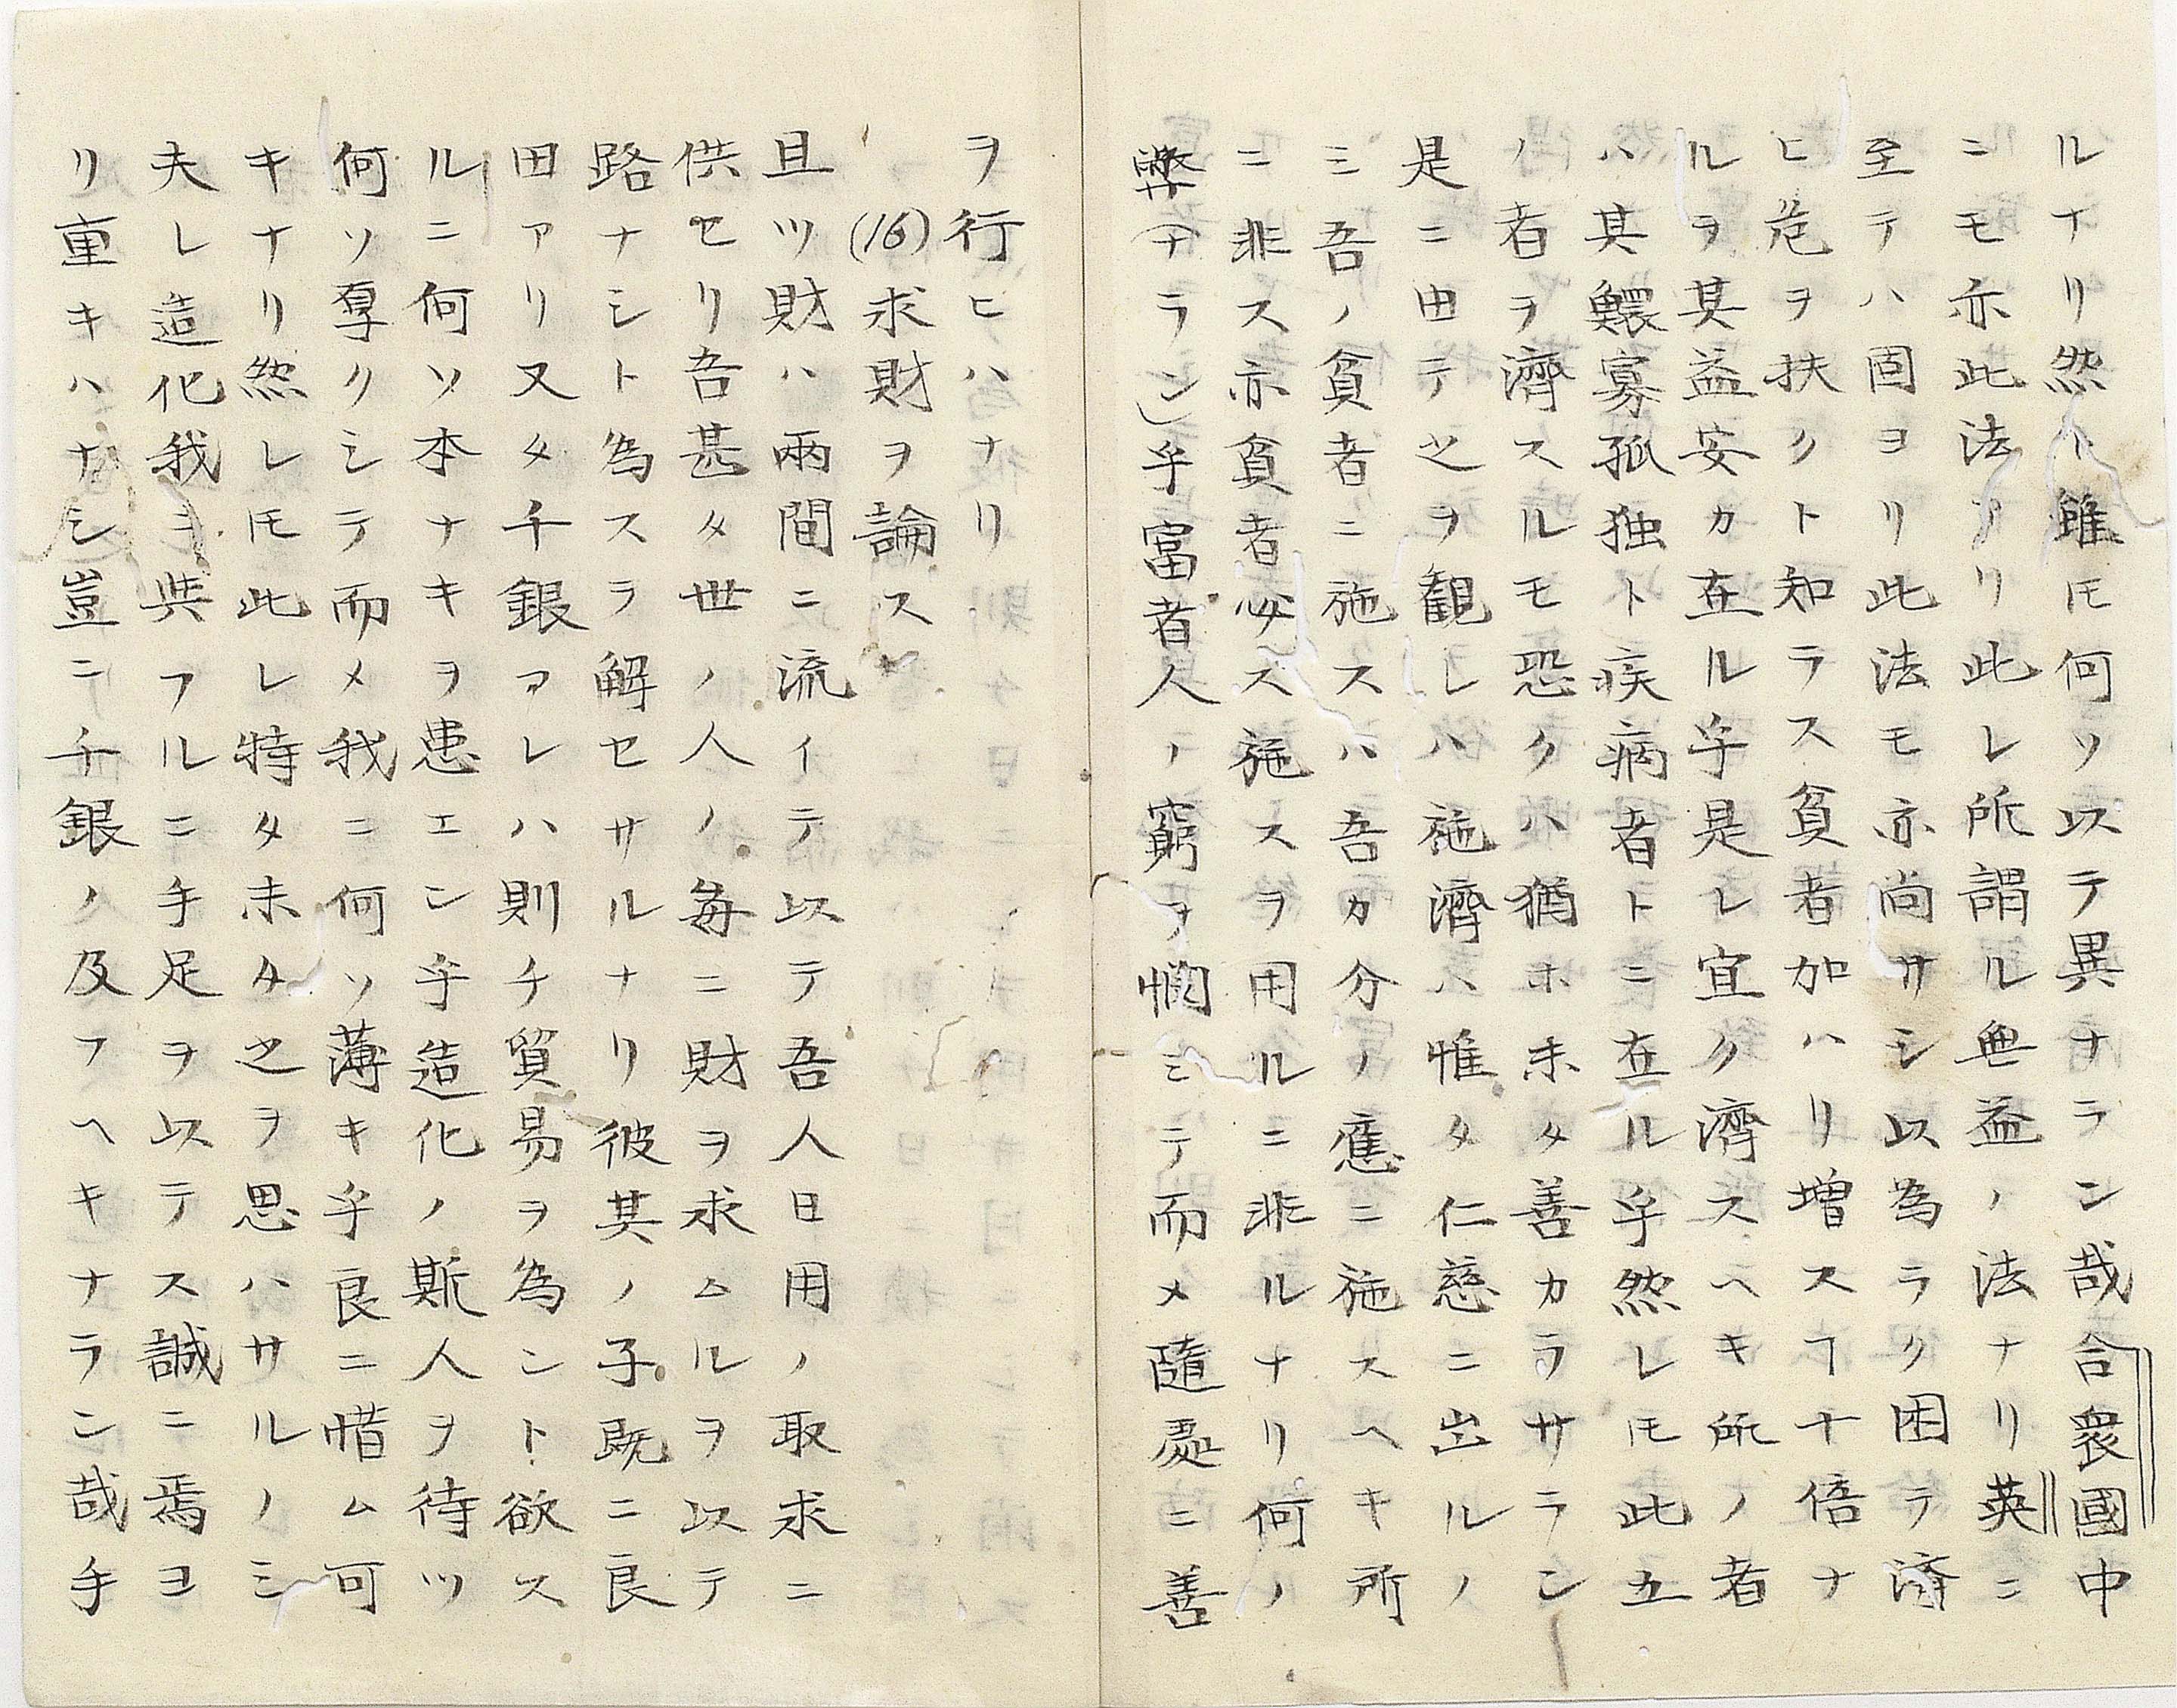 ルナリ然ト雖𪜈何ソ以テ異ナラン哉合衆國中
ニモ亦此法アリ此レ所謂ル無益ノ法ナリ英ニ
至テハ固ヨリ此法モ亦尚サシ以為ラク困テ済
ヒ危ヲ扶クト知ラス貧者加ハリ増スヿ十倍ナ
ルヲ其益安カ在ル乎是レ宜ク濟スヘキ所ノ者
ハ其鰥寡孤独ト疾病者トニ在ル乎然レ𪜈此五
ノ者ヲ濟スルモ恐クハ猶ホ未タ善カラサラン
是ニ由テ之ヲ観レハ施濟ハ惟タ仁慈ニ出ルノ
ミ吾ノ貧者ニ施スハ吾カ分ノ應ニ施スヘキ所
ニ非ス亦貧者必ス施スヲ用ルニ非ルナリ何ノ
弊(ナラン)乎富者人ノ窮ヲ憫ミテ而メ隨處ニ善
ヲ行ヒハナリ
(16)求財ヲ論ス
且ツ財ハ兩間ニ流イテ以テ吾人日用ノ取求ニ
供セリ吾甚タ世ノ人ノ毎ニ財ヲ求ムルヲ以テ
路ナシト為スラ解セサルナリ彼其ノ子既ニ良
田アリ又タ千銀アレハ則チ貿易ヲ為ント欲ス
ルニ何ソ本ナキヲ患エン乎造化ノ斯人ヲ待ツ
何ソ厚クシテ而メ我ニ何ソ薄キ乎良ニ惜ム可
キナリ然レ𪜈此レ特タ未タ之ヲ思ハサルノミ
夫レ造化我ヲ與フルニ手足ヲ以テス誠ニ焉ヨ
リ重キハナシ豈ニ千銀ノ及フヘキナラン哉手